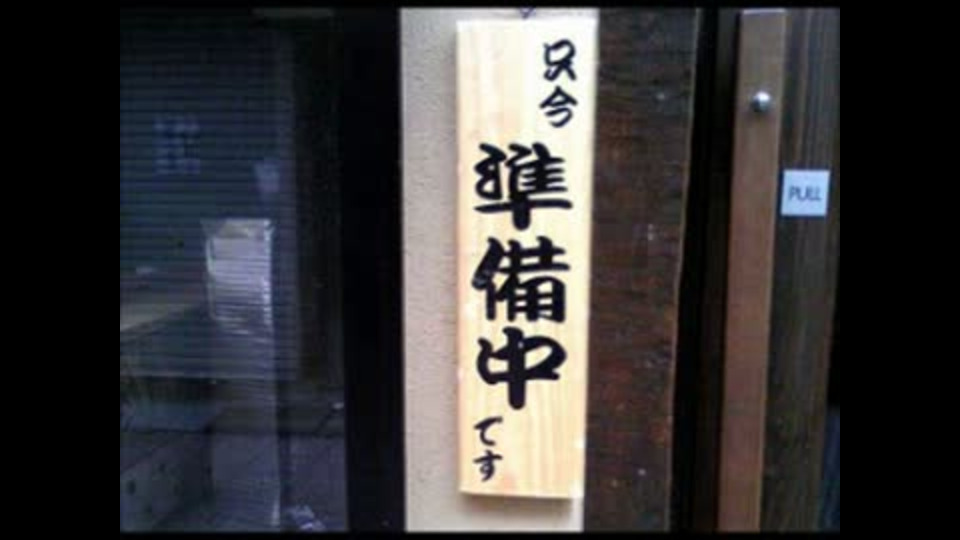 只今
準備中
です
PULL